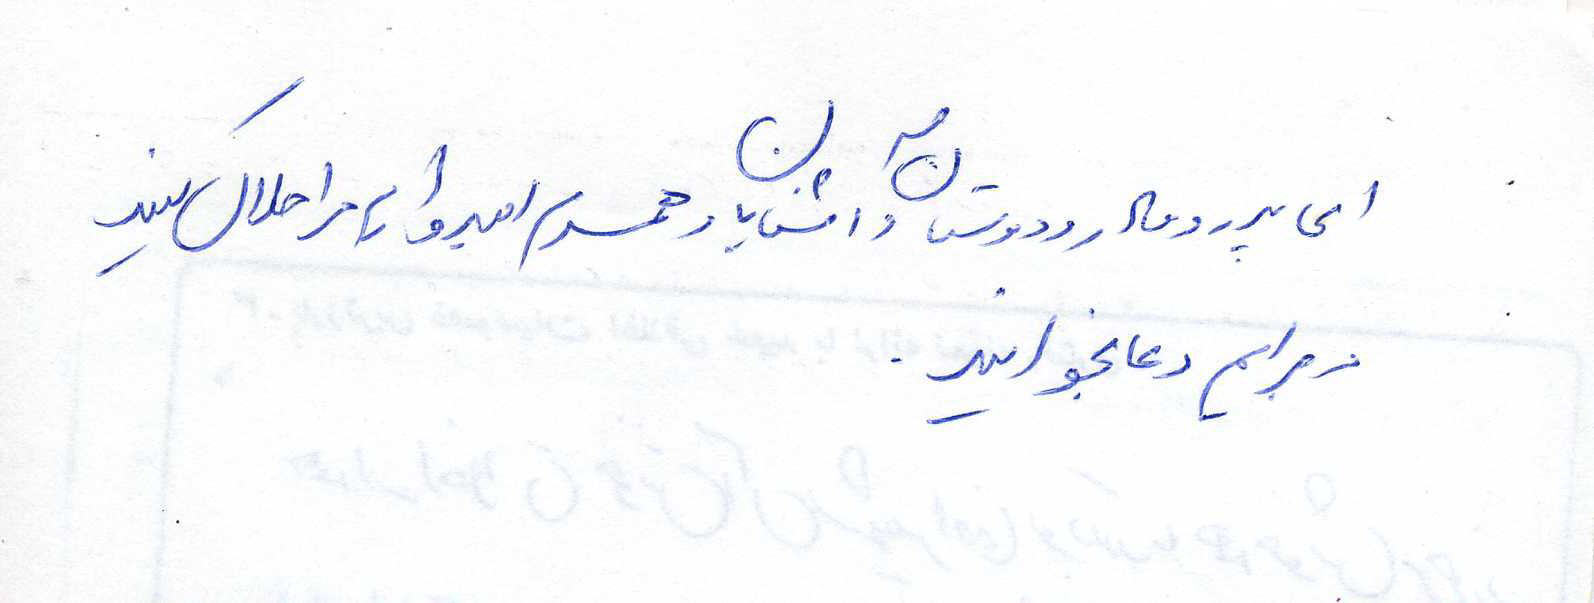 ای پدر و مادر و دوستان و آشنایان و همسرم امیدوارم مرا حلال کنید
و برایم دعا بخوانید .